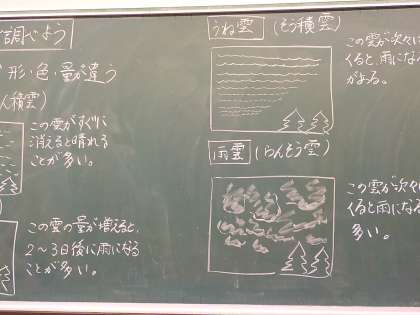 調べよう
形・色・量が違う
ん積雲)
この雲がすぐに
消えると晴れる
ことが多い。
)
この雲の量が増えると、
2〜3日後に雨になる
ことが多い。
うね雲 (そう積雲)
この雲が次々に
くると、雨になる
がよる。
雨雲 (らんそう雲)
この雲が次々
くると雨になる
多い。